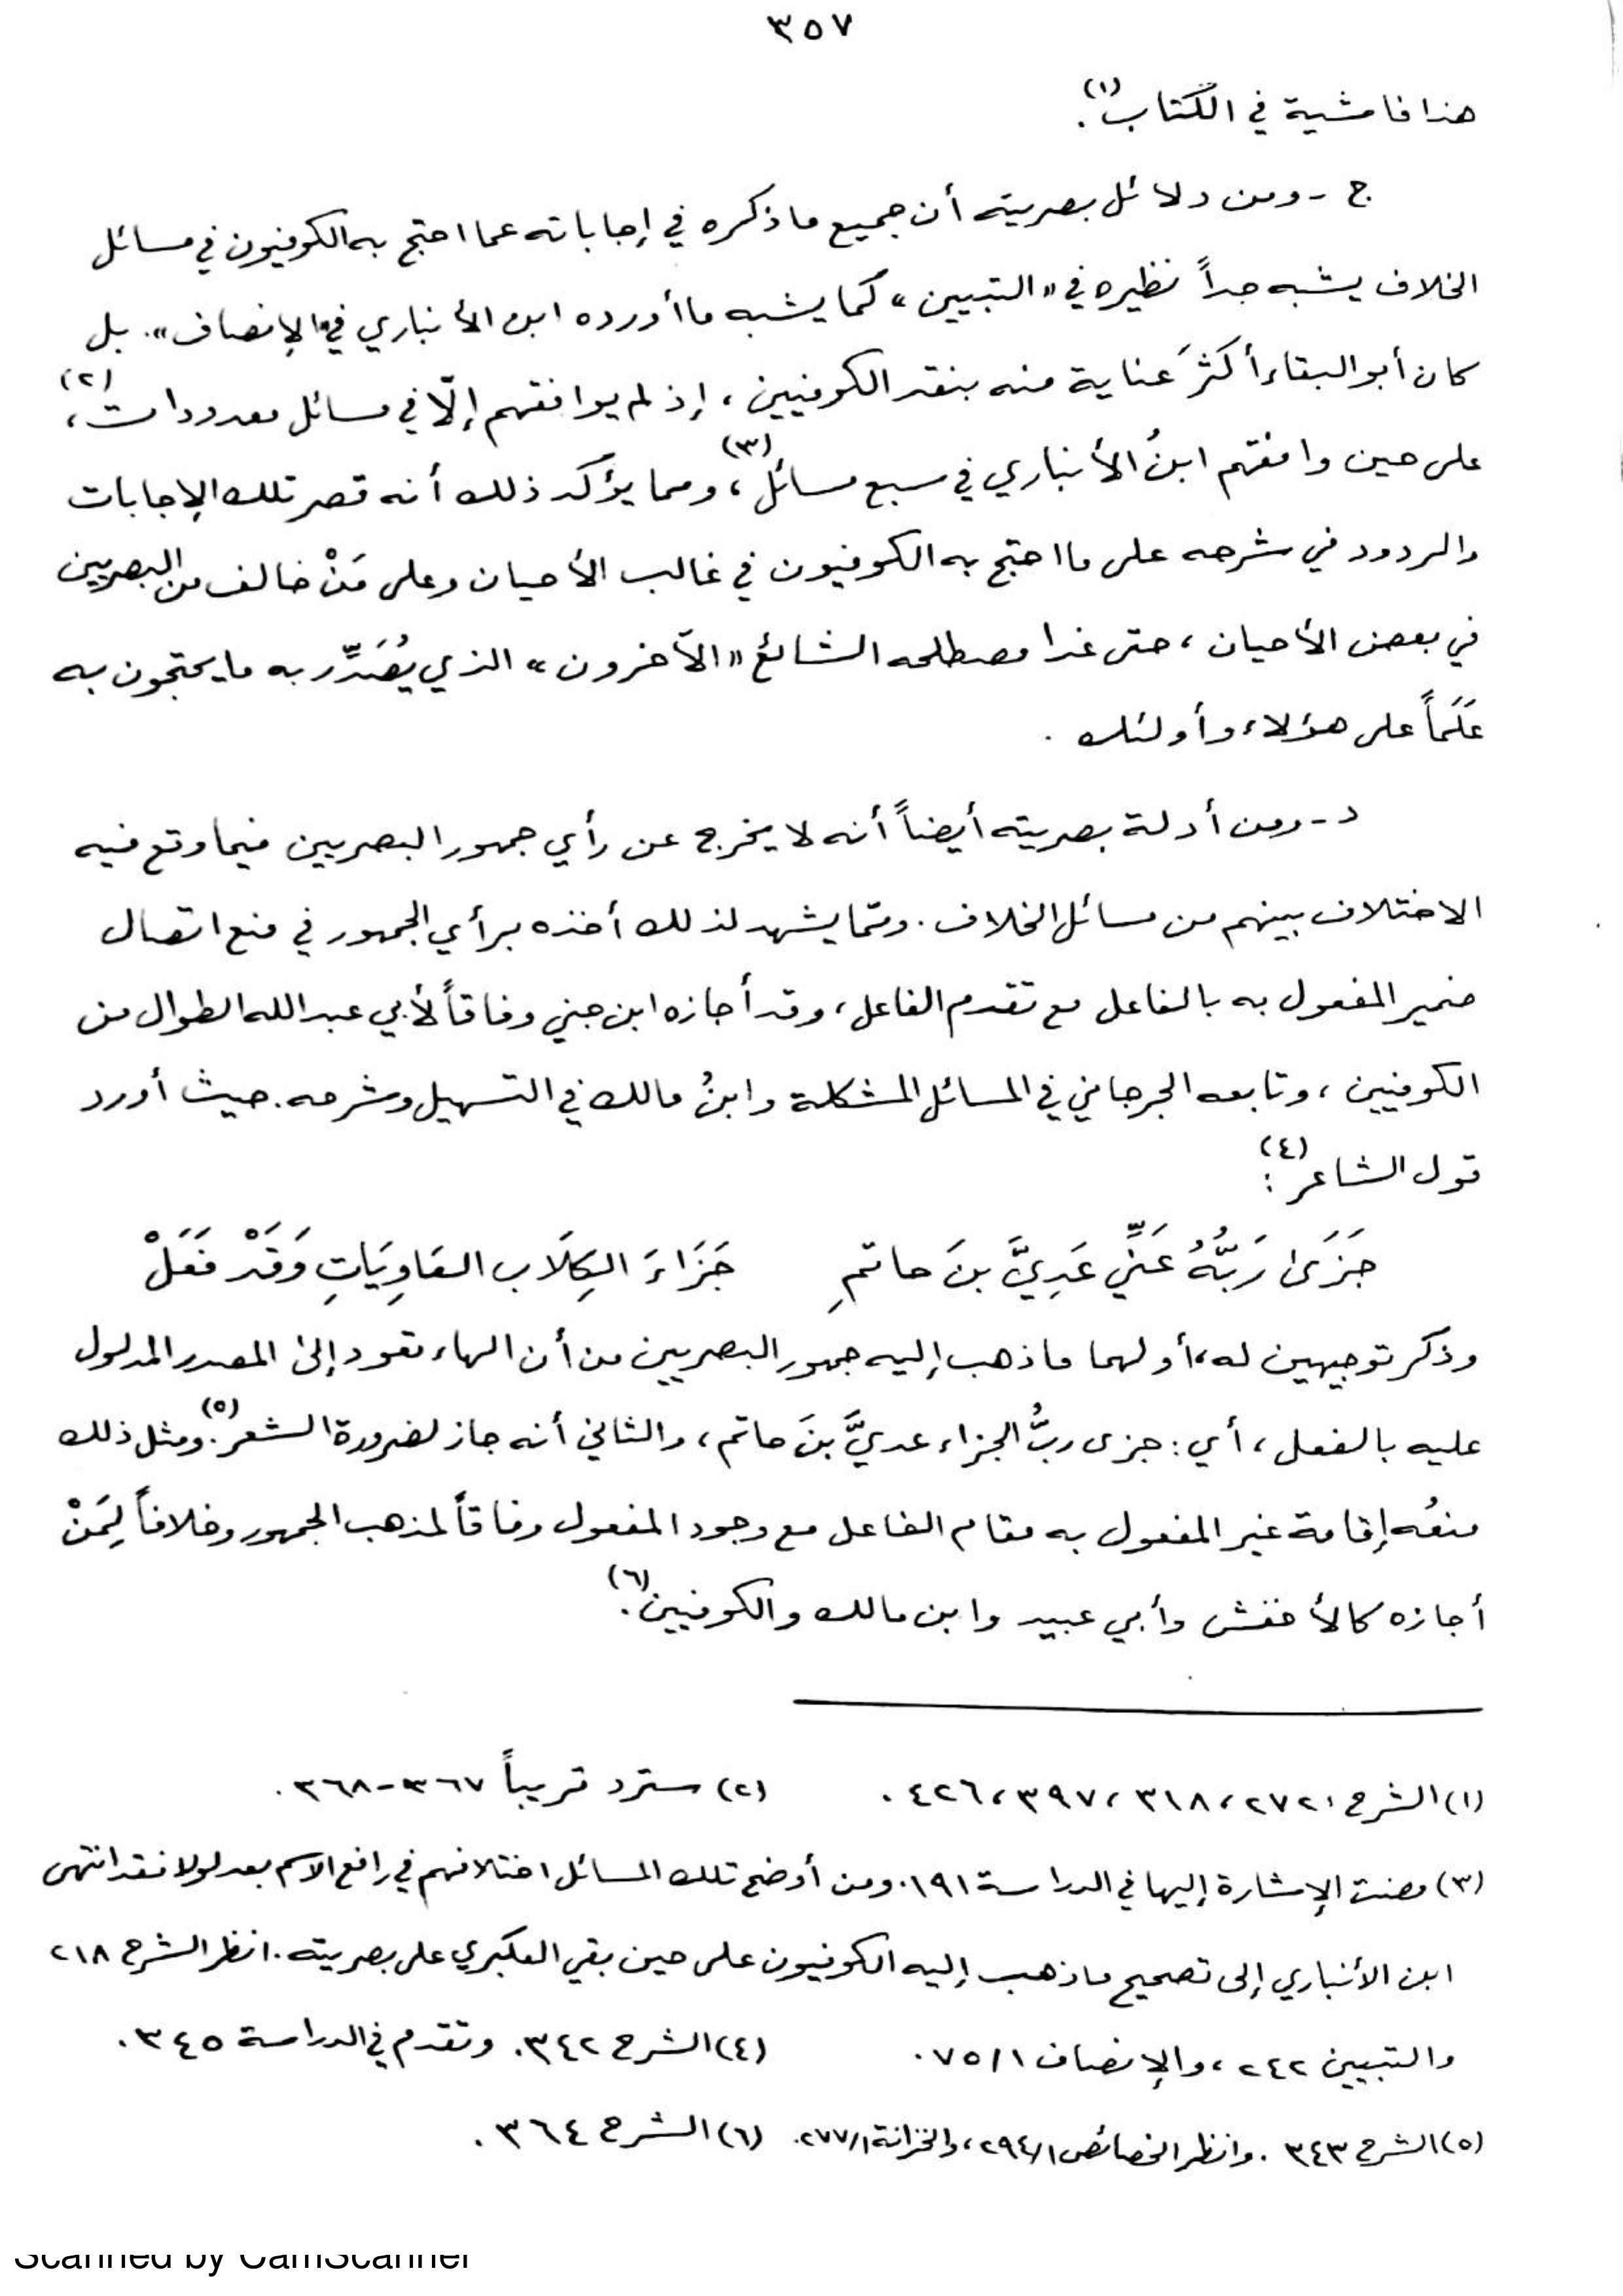 ٣٥٧
هذا فاشية في الكتاب(١).
ج - ومن دلائل بصريته أن جميع ما ذكره في إجاباته عما احتج به الكوفيون في مسائل
الخلاف يشبه جداً نظيره في «التبيين» كما يشبه ما أورده ابن الأنباري في «الإنصاف». بل
كان أبو البقاء أكثرَ عناية منه بنقد الكوفيين، إذ لم يوافقهم إلّا في مسائل معدودات(٢)،
على حين وافقهم ابنُ الأنباري في سبع مسائل(٣)، ومما يؤكد ذلك أنه قصر تلك الإجابات
والردود في شرحه على ما احتج به الكوفيون في غالب الأحيان وعلى مَنْ خالف من البصريين
في بعض الأحيان، حتى غدا مصطلحه الشائع «الآخرون» الذي يُصَدِّر به ما يحتجون به
عَلَماً على هؤلاء وأولئك .
د - ومن أدلة بصريته أيضاً أنه لا يخرج عن رأي جمهور البصريين فيما وقع فيه
الاختلاف بينهم من مسائل الخلاف. وممّا يشهد لذلك أخذه برأي الجمهور في منع اتصال
ضمير المفعول به بالفاعل مع تقدم الفاعل، وقد أجازه ابن جني وفاقاً لأبي عبد الله الطوال من
الكوفيين، وتابعه الجرجاني في المسائل المشكلة وابنُ مالك في التسهيل وشرحه. حيث أورد
قول الشاعر(٤):
جَزَىٰ رَبُّهُ عَنِّي عَدِيَّ بنَ حاتمِ جَزَاءَ الكِلَاب العَاوِيَاتِ وَقَدْ فَعَلْ
وذكر توجيهين له، أولهما ما ذهب إليه جمهور البصريين من أن الهاء تعود إلى المصدر المدلول
عليه بالفعل، أي: جزى ربُّ الجزاء عديَّ بنَ حاتم، والثاني أنه جاز لضرورة الشعر(٥). ومثل ذلك
منعُه إقامة غير المفعول به مقام الفاعل مع وجود المفعول وفاقاً لمذهب الجمهور وخلافاً لِمَنْ
أجازه كالأخفش وأبي عبيد وابن مالك والكوفيين(٦).
(١) الشرح: ٢٧٢، ٣١٨، ٣٩٧، ٤٢٦ . (٢) سترد قريباً ٣٦٧-٣٦٨ .
(٣) مضت الإشارة إليها في الدراسة ١٩١. ومن أوضح تلك المسائل اختلافهم في رافع الاسم بعد لولا فقد انتهى
ابن الأنباري إلى تصحيح ما ذهب إليه الكوفيون على حين بقي العكبري على بصريته. انظر الشرح ٢١٨
والتبيين ٢٤٢، والإنصاف ٧٥/١ . (٤) الشرح ٣٤٢. وتقدم في الدراسة ٣٤٥ .
(٥) الشرح ٣٤٣ . وانظر الخصائص ٢٩٤/١، والخزانة ٢٧٧/١. (٦) الشرح ٣٦٤ .
Scanned by CamScanner